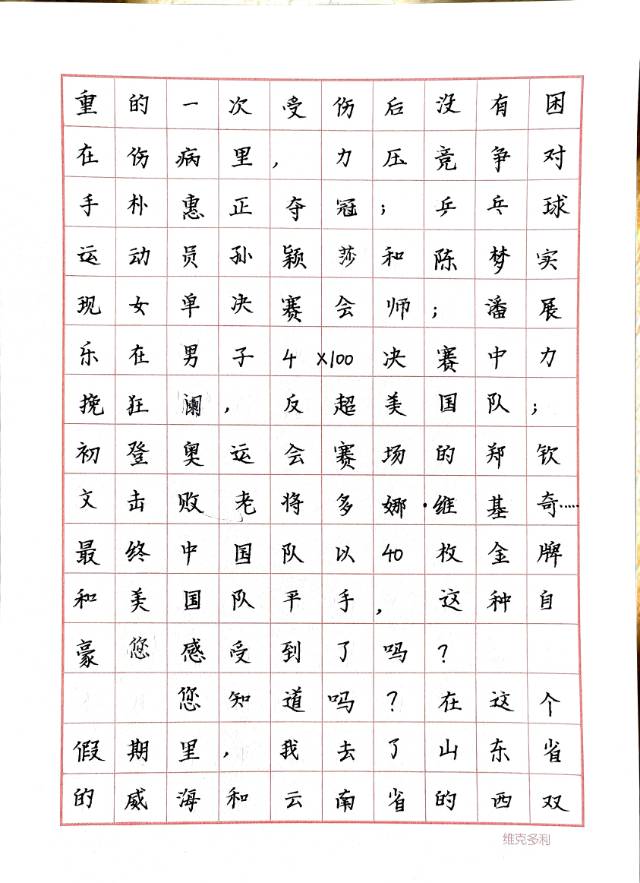 重的一次受伤后没有困
在伤病里，力压竞争对
手朴惠正夺冠；乒乓球
运动员孙颖莎和陈梦实
现女单决赛会师；潘展
乐在男子4×100决赛中力
挽狂阑，反超美国队；
初登奥运会赛场的郑钦
文击败老将多娜·维基奇……
最终中国队以40枚金牌
和美国队平手，这种自
豪您感受到了吗？
您知道吗？在这个
假期里，我去了山东省
的威海和云南省的西双
维克多利